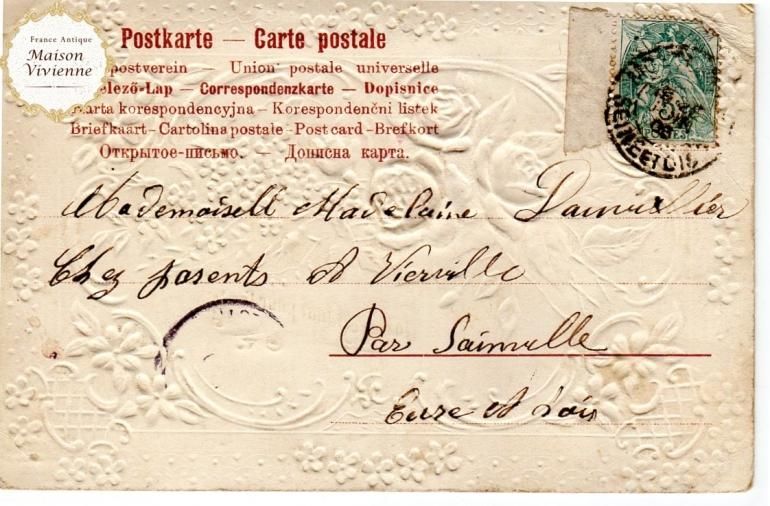 France Antique
Maison
Vivienne
Postkarte — Carte postale
postverein — Union postale universelle
Levelező-Lap — Correspondenzkarte — Dopisnice
Karta korespondencyjna — Korespondenčni listek
Briefkaart - Cartolina postale - Post card - Brefkort
Открытое-письмо. — Дописна карта.
Mademoiselle Madelaine
Chez parents A Vierville
Par Sainville
Eure et Loir
SEINE ET OISE